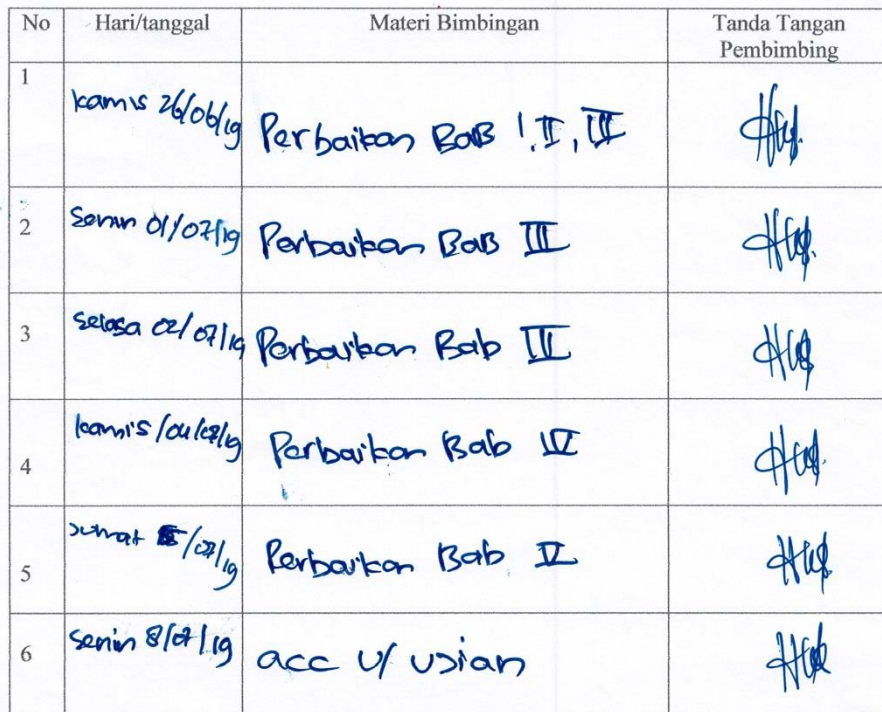 No Hari/tanggal Materi Bimbingan Tanda Tangan
Pembimbing
1
kamis 26/06/19 Perbaikan BaB I, II, III
2 Senin 01/07/19 Perbaikan BaB III
3 Selasa 02/07/19 Perbaikan Bab III
4 kamis /04/07/19 Perbaikan Bab IV
5 Jumat /07/19 Perbaikan Bab V
6 Senin 8/07/19 acc u/ ujian